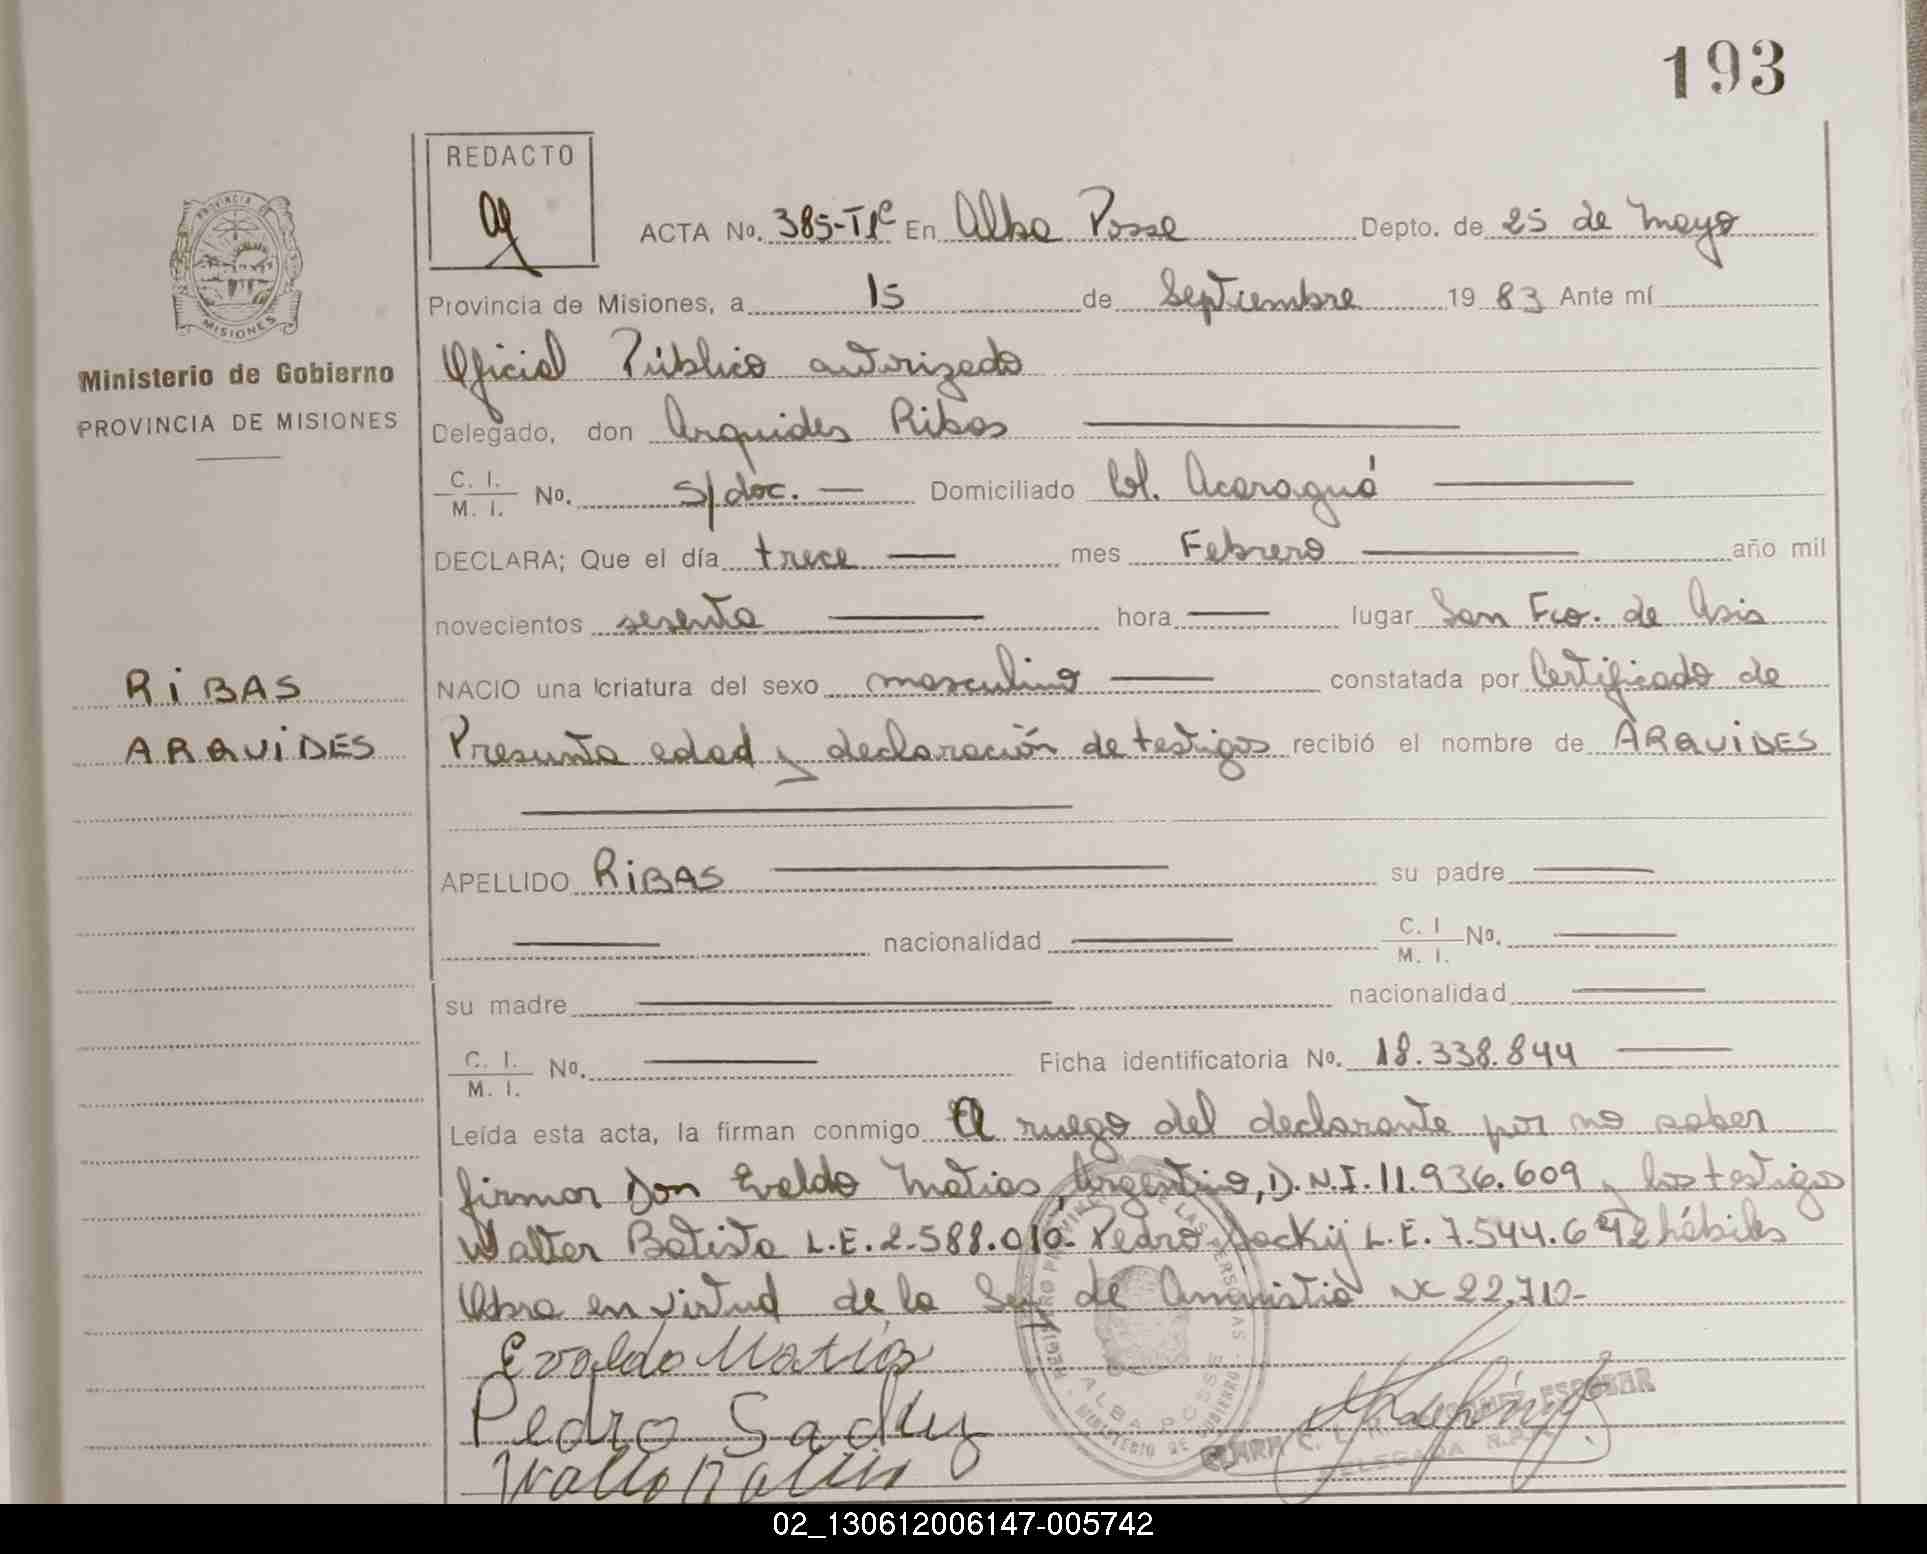 193
REDACTO
ACTA No. 385-T1º En Alba Posse Depto. de 25 de Mayo
Provincia de Misiones, a 15 de Septiembre 19 83 Ante mí
Oficial Público autorizado
Delegado, don Arquides Ribas
C. I.
M. I. No. s/doc. Domiciliado Col. Acaraguá
DECLARA; Que el día trece mes Febrero año mil
novecientos sesenta hora lugar San Fco. de Asis
NACIO una criatura del sexo masculino constatada por Certificado de
Presunta edad y declaración de testigos recibió el nombre de ARQUIDES
APELLIDO RIBAS su padre
nacionalidad C. I. M. I. No.
su madre nacionalidad
C. I.
M. I. No. Ficha identificatoria No. 18.338.844
Leída esta acta, la firman conmigo A ruego del declarante por no saber
firmar Don Evaldo Matias, Argentino, D.N.I. 11.936.609 y los testigos
Walter Batista L.E. 2.588.010. Pedro L.E. 7.544.692 hábiles
Obra en virtud de la Ley de Amnistia Nº 22.710-
Evaldo Matias
Pedro
MISIONES
Ministerio de Gobierno
PROVINCIA DE MISIONES
RIBAS
ARQUIDES
ALBA POSSE
MINISTERIO DE GOBIERNO
02_130612006147-005742